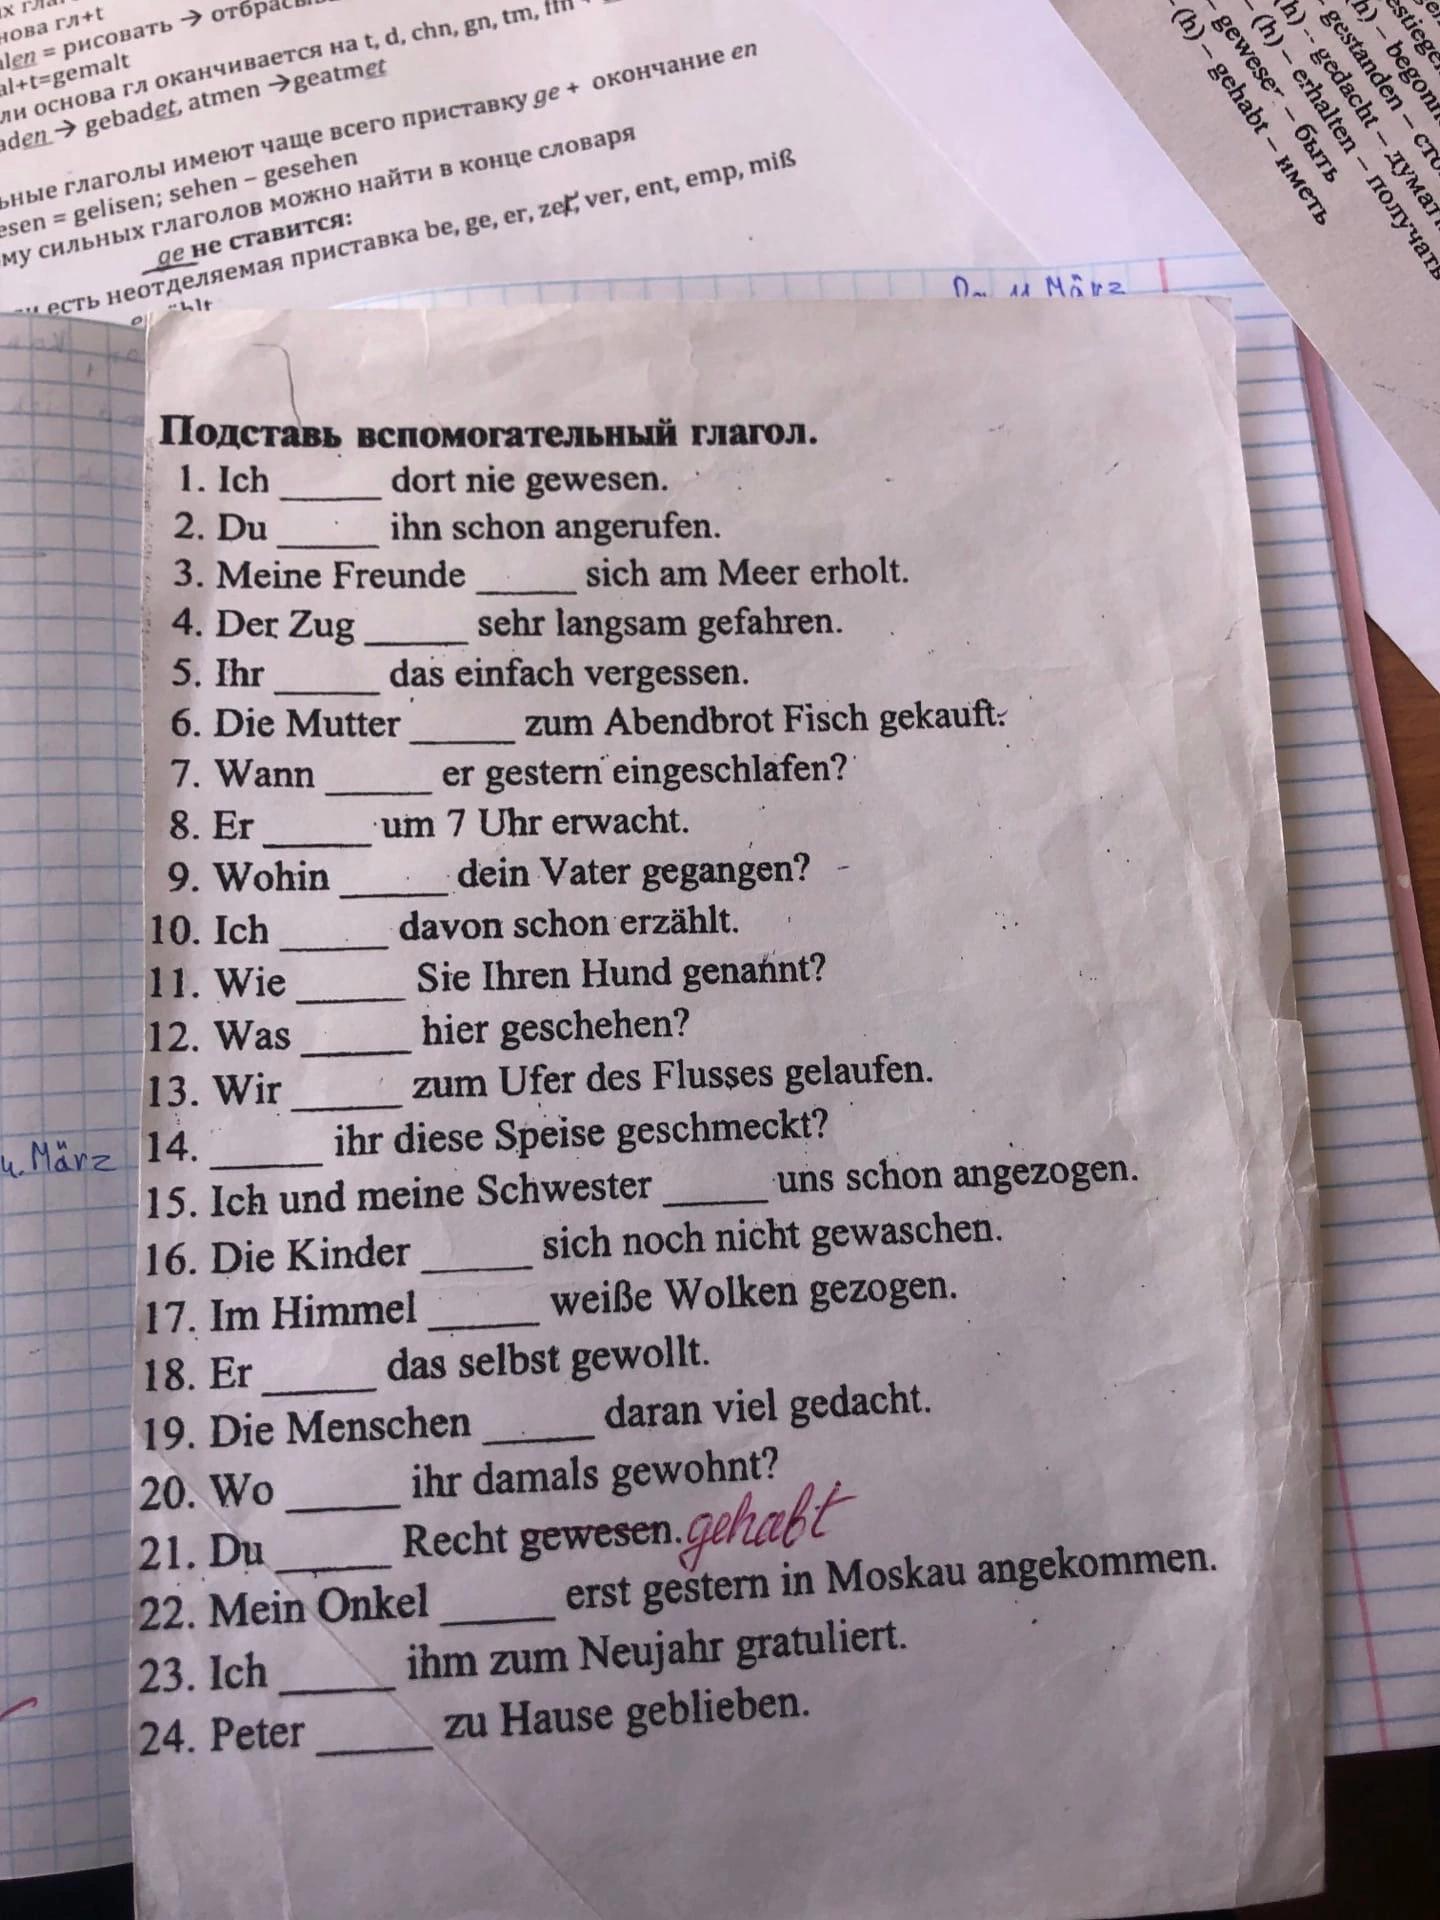 нова гл+t
= рисовать →
al+t=gemalt
основа гл оканчивается на t, d, chn, gn, tm,
→ gebadet, atmen →geatmet
глаголы имеют чаще всего приставку ge + окончание en
= gelisen; sehen – gesehen
сильных глаголов можно найти в конце словаря
ge не ставится:
есть неотделяемая приставка be, ge, er, zer, ver, ent, emp, miß
– begonn
gestanden – сто
(h) – gedacht – думат
– (h) – erhalten – получать
– быть
(h) – gehabt – иметь
11 März
Подставь вспомогательный глагол.
1. Ich _____ dort nie gewesen.
2. Du _____ ihn schon angerufen.
3. Meine Freunde _____ sich am Meer erholt.
4. Der Zug _____ sehr langsam gefahren.
5. Ihr _____ das einfach vergessen.
6. Die Mutter _____ zum Abendbrot Fisch gekauft.
7. Wann _____ er gestern eingeschlafen?
8. Er _____ um 7 Uhr erwacht.
9. Wohin _____ dein Vater gegangen?
10. Ich _____ davon schon erzählt.
11. Wie _____ Sie Ihren Hund genannt?
12. Was _____ hier geschehen?
13. Wir _____ zum Ufer des Flusses gelaufen.
14. _____ ihr diese Speise geschmeckt?
15. Ich und meine Schwester _____ uns schon angezogen.
16. Die Kinder _____ sich noch nicht gewaschen.
17. Im Himmel _____ weiße Wolken gezogen.
18. Er _____ das selbst gewollt.
19. Die Menschen _____ daran viel gedacht.
20. Wo _____ ihr damals gewohnt?
21. Du _____ Recht gewesen. gehabt
22. Mein Onkel _____ erst gestern in Moskau angekommen.
23. Ich _____ ihm zum Neujahr gratuliert.
24. Peter _____ zu Hause geblieben.
4. März